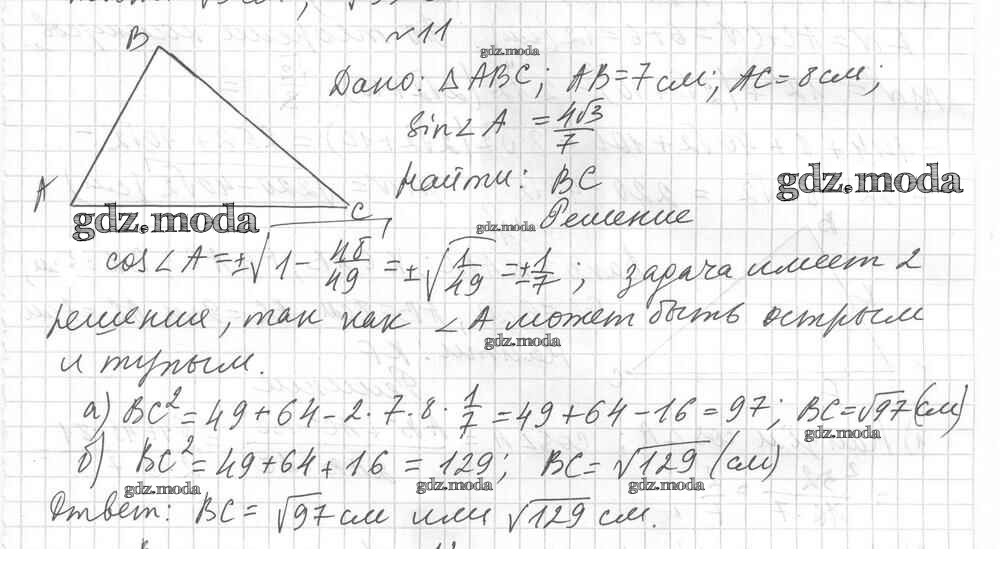 №11
B
gdz.moda
Дано: △ABC; AB=7см; AC=8см;
sin∠A = 4√3/7
Найти: BC
gdz.moda
A
C
gdz.moda
gdz.moda
Решение
cos∠A=±√(1-48/49)=±√(1/49)=±1/7; задача имеет 2
решения, так как ∠A может быть острым
gdz.moda
и тупым.
а) BC²=49+64-2·7·8·1/7=49+64-16=97; BC=√97(см)
gdz.moda
б) BC²=49+64+16=129; BC=√129(см)
gdz.moda gdz.moda gdz.moda
Ответ: BC=√97см или √129см.